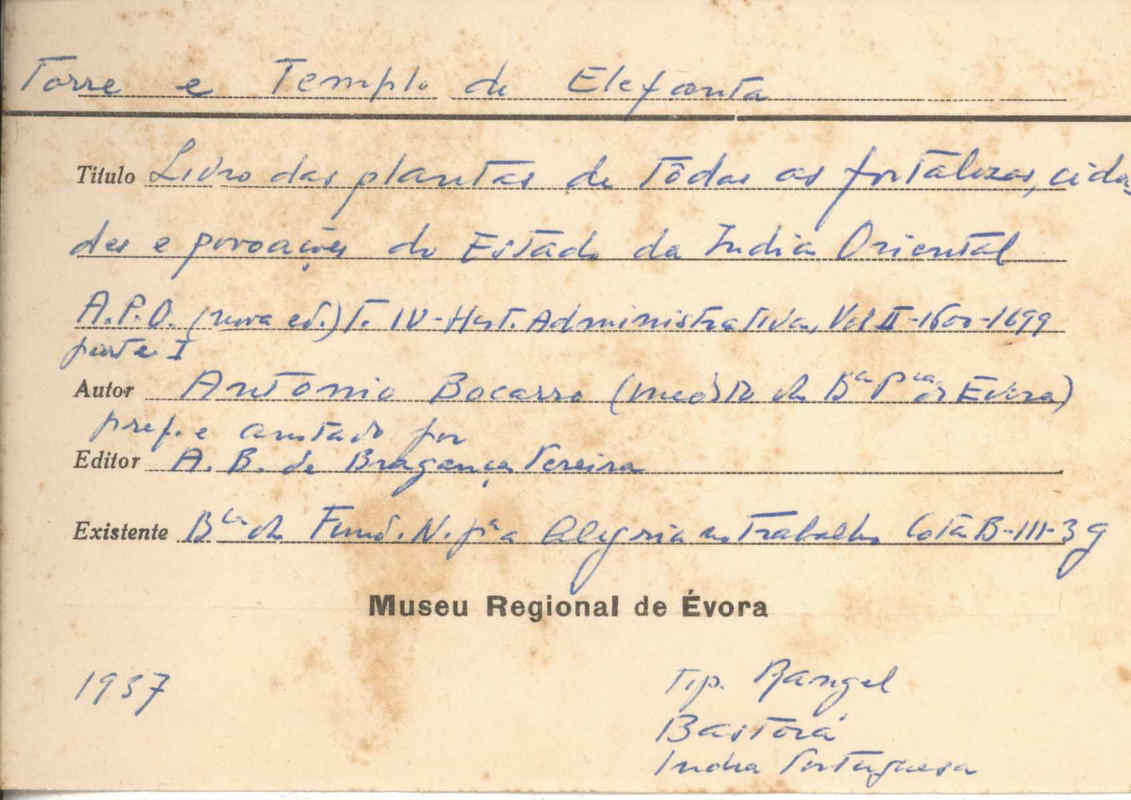 Torre e Templo de Elefanta
Titulo Livro das plantas de tôdas as fortalezas, cida
des e povoações do Estado da India Oriental
A.P.O. (nova ed.) T. IV - Hist. Administrativa, Vol II - 1600-1699
parte I
Autor Antonio Bocarro (inedito da Bca Pca de Évora)
pref. e anotado por
Editor A. B. de Bragança Pereira
Existente Bca da Fund. N. pa a Alegria no Trabalho Cota B-III-39
Museu Regional de Évora
1937 Tip. Rangel
Bastorá
India Portuguesa